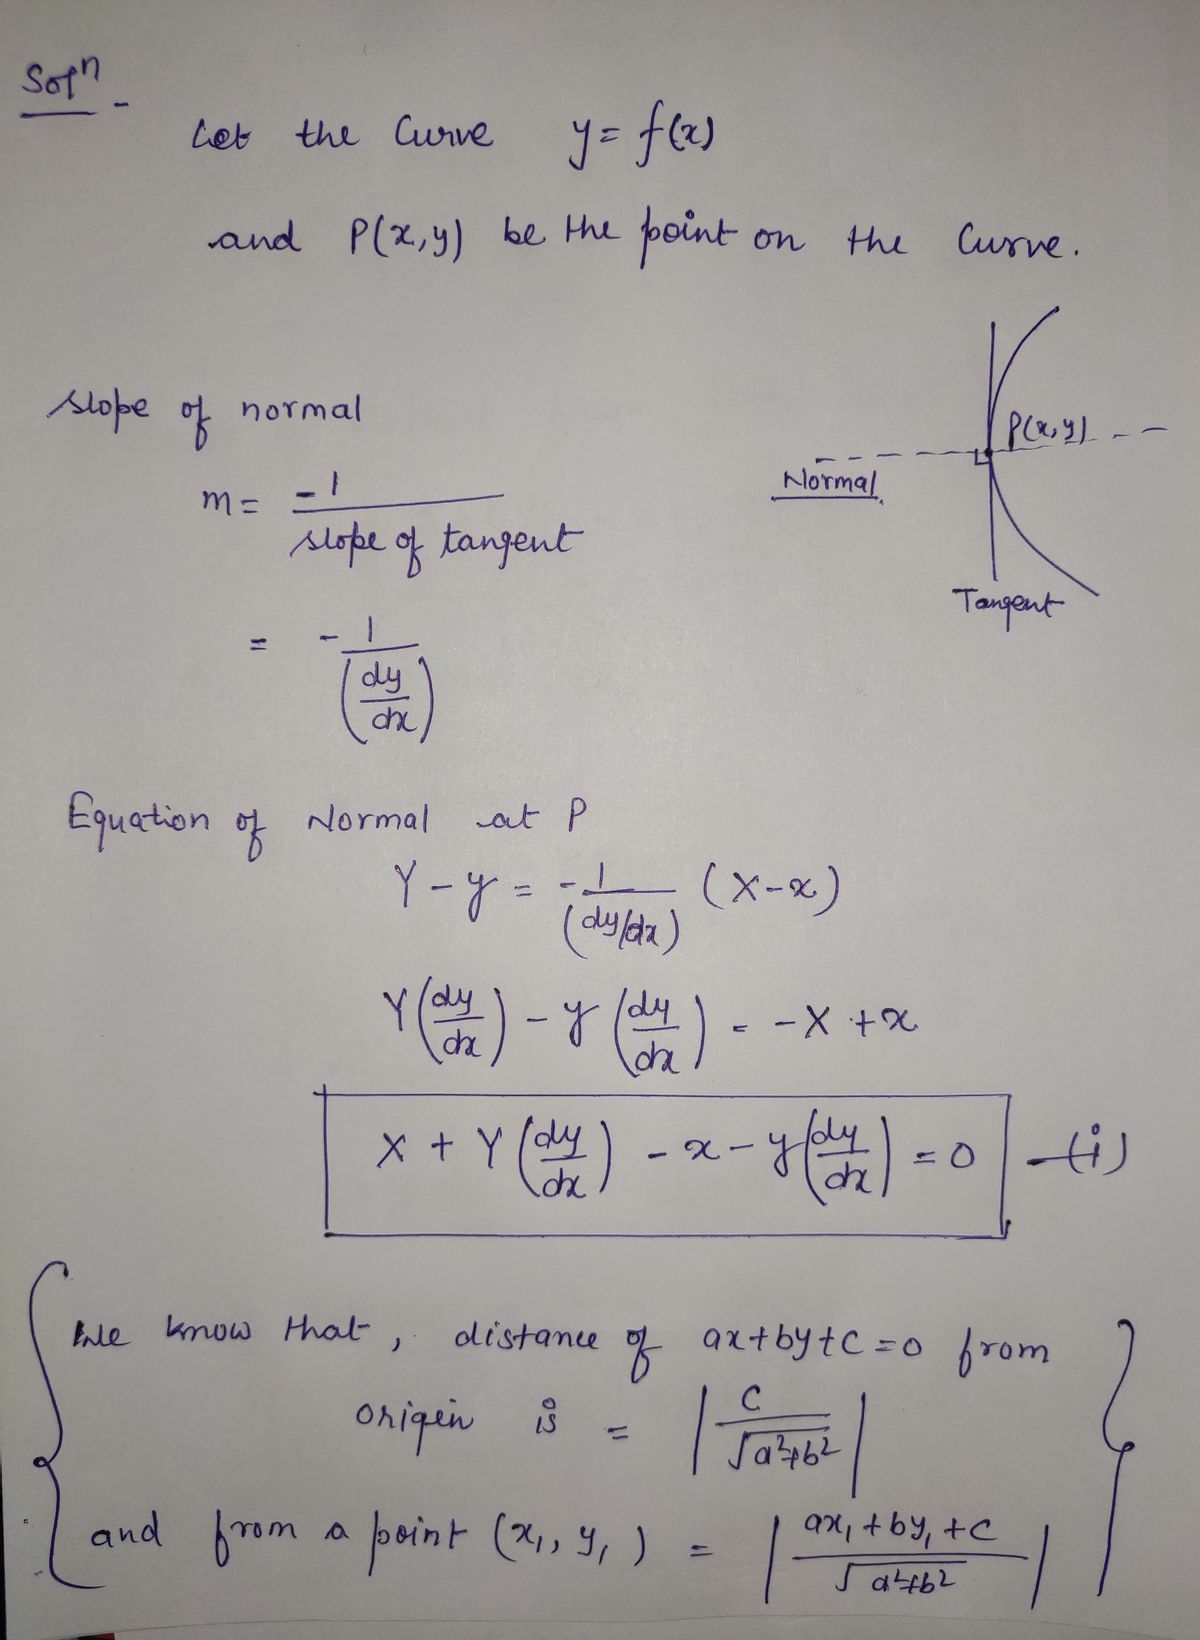 Solⁿ -
Let the Curve y = f(x)
and P(x,y) be the point on the Curve.
slope of normal
m = -1 / slope of tangent
= -1 / (dy/dx)
P(x,y)
Normal
Tangent
Equation of Normal at P
Y - y = -1/(dy/dx) (X - x)
Y(dy/dx) - y(dy/dx) = -X + x
X + Y(dy/dx) - x - y(dy/dx) = 0 —(i)
We know that, distance of ax+by+c=0 from
origin is = |c/√a²+b²|
and from a point (x₁, y₁) = |ax₁+by₁+c/√a²+b²|